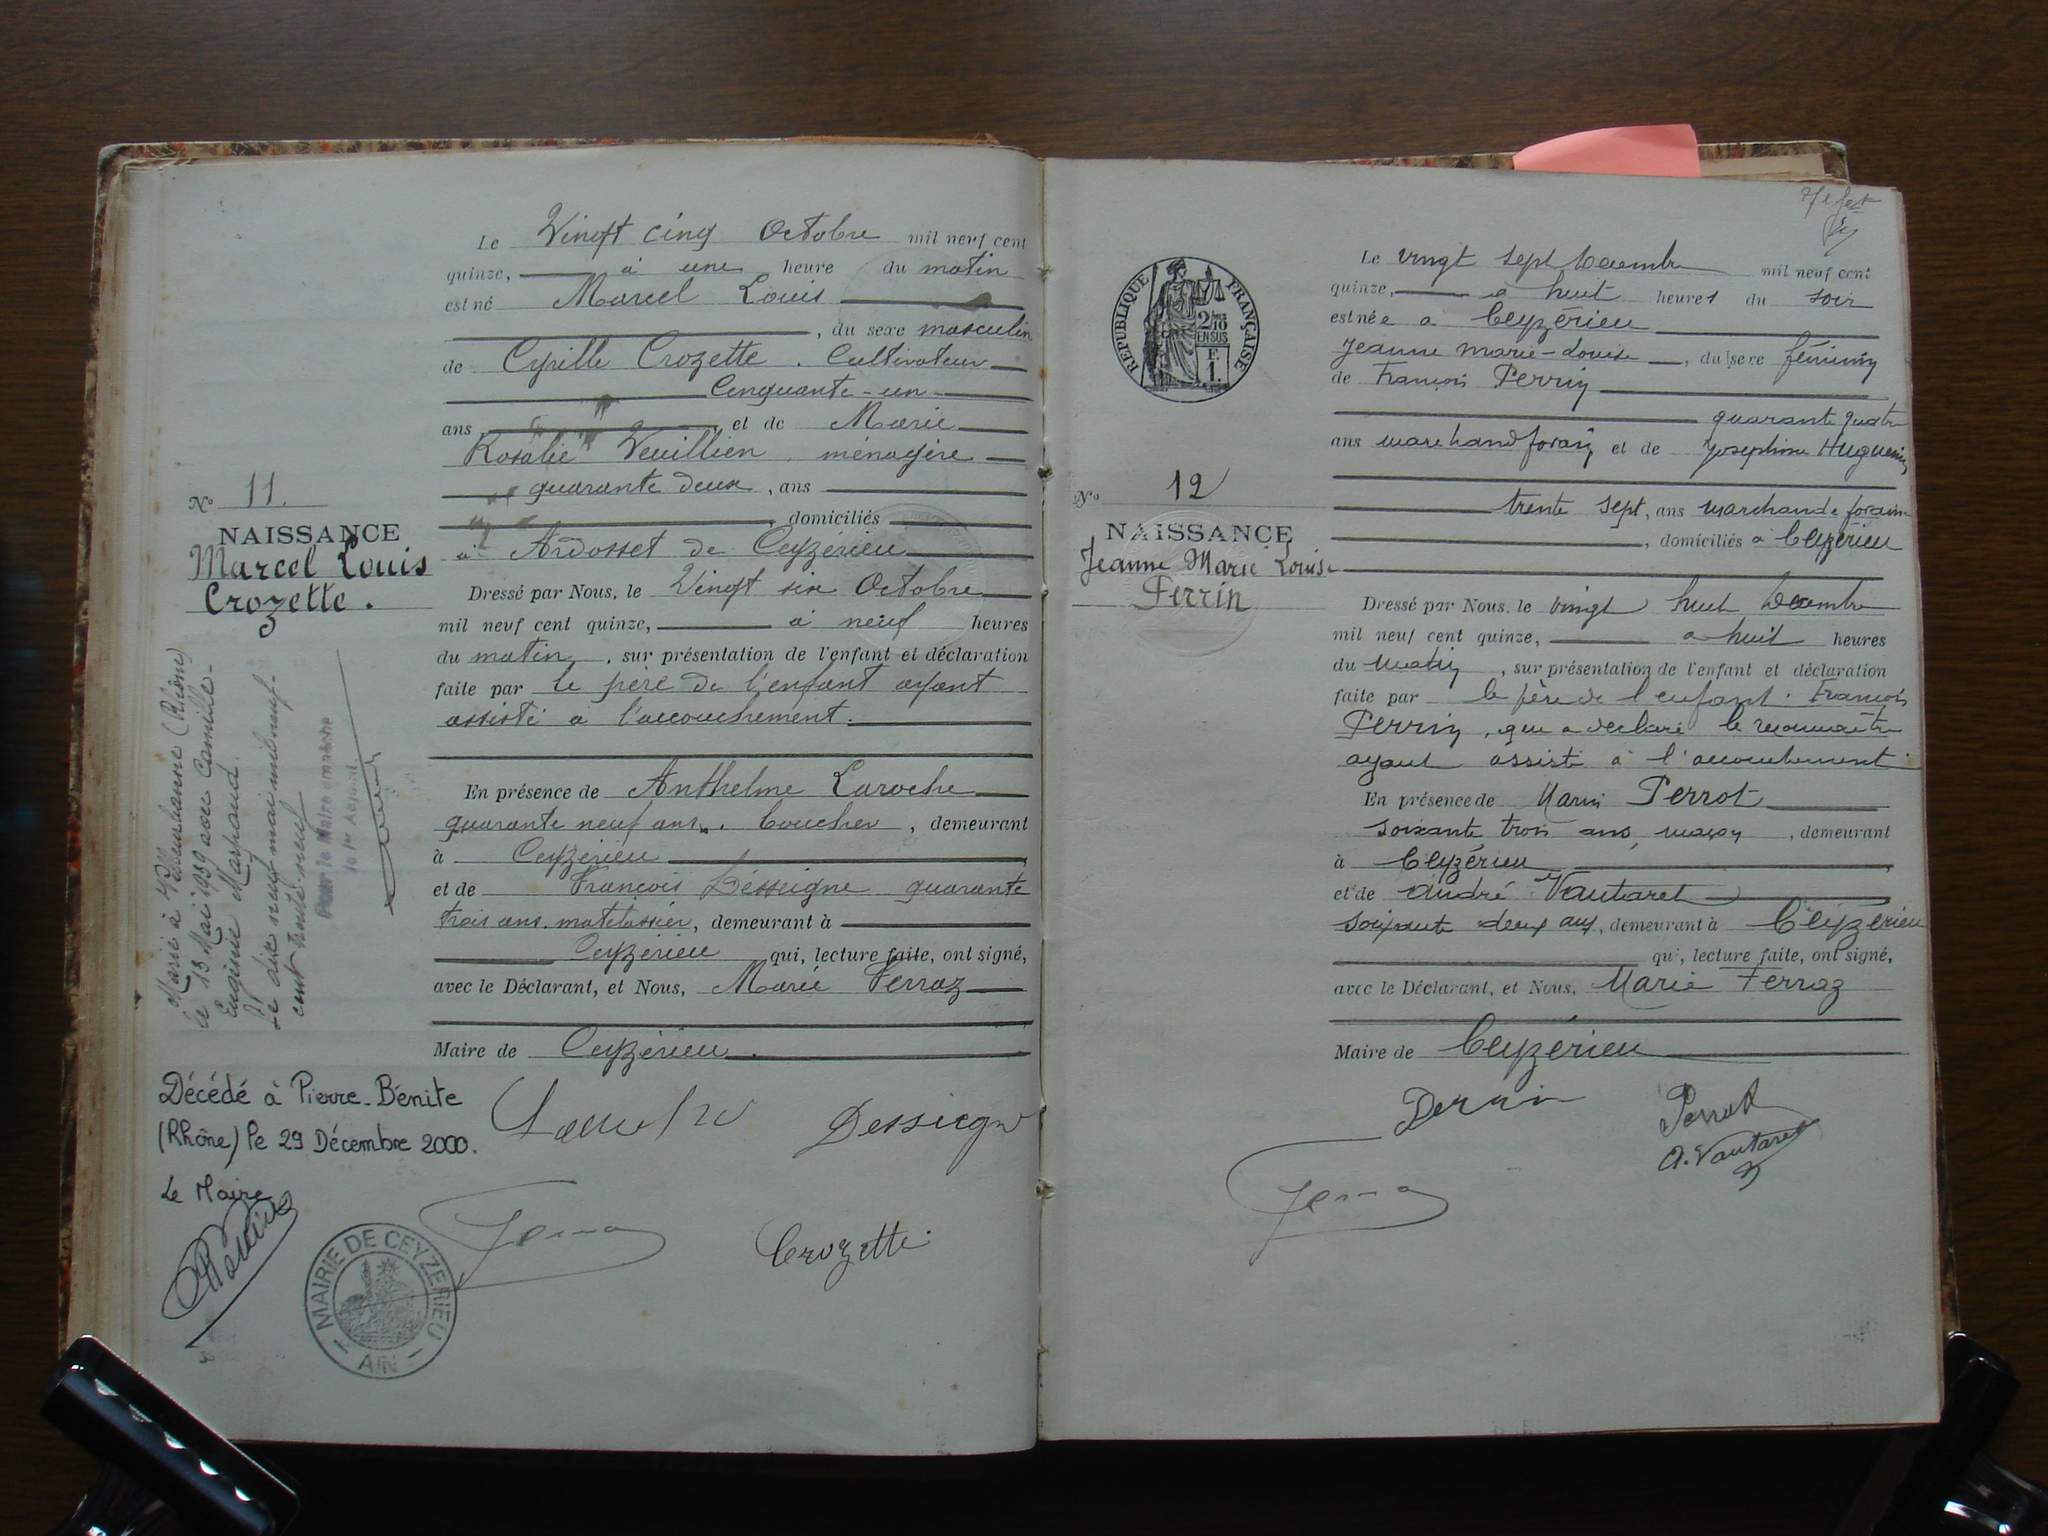 Le Vingt cinq Octobre mil neuf cent
quinze, à une heure du matin
est né Marcel Louis
, du sexe masculin
de Cyrille Crozette . Cultivateur
Cinquante-un
ans et de Marie
Rosalie Veuillien . ménagère
quarante deux , ans
, domiciliés
à Ardosset de Ceyzérieu
N° 11.
NAISSANCE
Marcel Louis
Crozette .
Dressé par Nous, le Vingt six Octobre
mil neuf cent quinze, à neuf heures
du matin , sur présentation de l'enfant et déclaration
faite par le père de l'enfant ayant
assisté à l'accouchement.
En présence de Anthelme Laroche
quarante neuf ans . boucher , demeurant
à Ceyzérieu
et de François Désseigne quarante
trois ans. matelassier, demeurant à
Ceyzérieu qui, lecture faite, ont signé,
avec le Déclarant, et Nous, Marie Ferraz
Maire de Ceyzérieu .
Marié à Villeurbanne (Rhône)
le 13 Mai 1939 avec Camille-
Eugénie Marpaud.
Le dix neuf mai mil neuf-
cent trente-neuf
Pour le Maire empêché
le 1er Adjoint
Décédé à Pierre-Bénite
(Rhône) le 29 Décembre 2000.
Le Maire
Desseigne
Crozette
MAIRIE DE CEYZERIEU
AIN
REPUBLIQUE FRANÇAISE
2/10
EN SUS
F.
1.
Le vingt sept Décembre mil neuf cent
quinze, à huit heures du soir
est née à Ceyzérieu
Jeanne Marie-Louise , du sexe féminin
de François Perrin
quarante quatre
ans marchand forain et de Joséphine Huguenin
trente sept, ans marchande foraine
, domiciliés à Ceyzérieu
N° 12
NAISSANCE
Jeanne Marie Louise
Perrin
Dressé par Nous, le vingt huit Décembre
mil neuf cent quinze, à huit heures
du matin , sur présentation de l'enfant et déclaration
faite par le père de l'enfant. François
Perrin, qui a déclaré le reconnaître
ayant assisté à l'accouchement.
En présence de Marin Perrot
soixante trois ans, maçon , demeurant
à Ceyzérieu
et de André Vautaret
soixante deux ans, demeurant à Ceyzérieu
qui, lecture faite, ont signé,
avec le Déclarant, et Nous, Marie Ferraz
Maire de Ceyzérieu
Perrin
Perrot
A. Vautaret